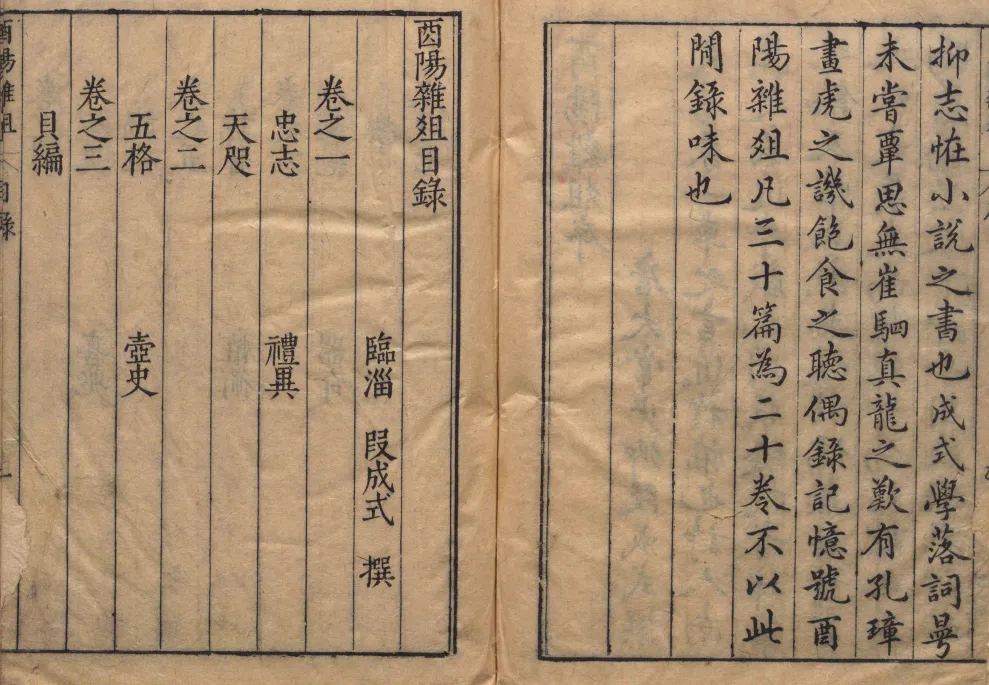 抑志恠小說之書也成式學落詞曼
未嘗覃思無崔駰真龍之歎有孔璋
畫虎之譏飽食之聽偶錄記憶號酉
陽雜爼凡三十篇為二十卷不以此
閒錄味也
酉陽雜爼目錄
臨淄 段成式 撰
卷之一
忠志 禮異
天咫
卷之二
五格 壺史
卷之三
貝編
酉陽雜爼 目錄 一